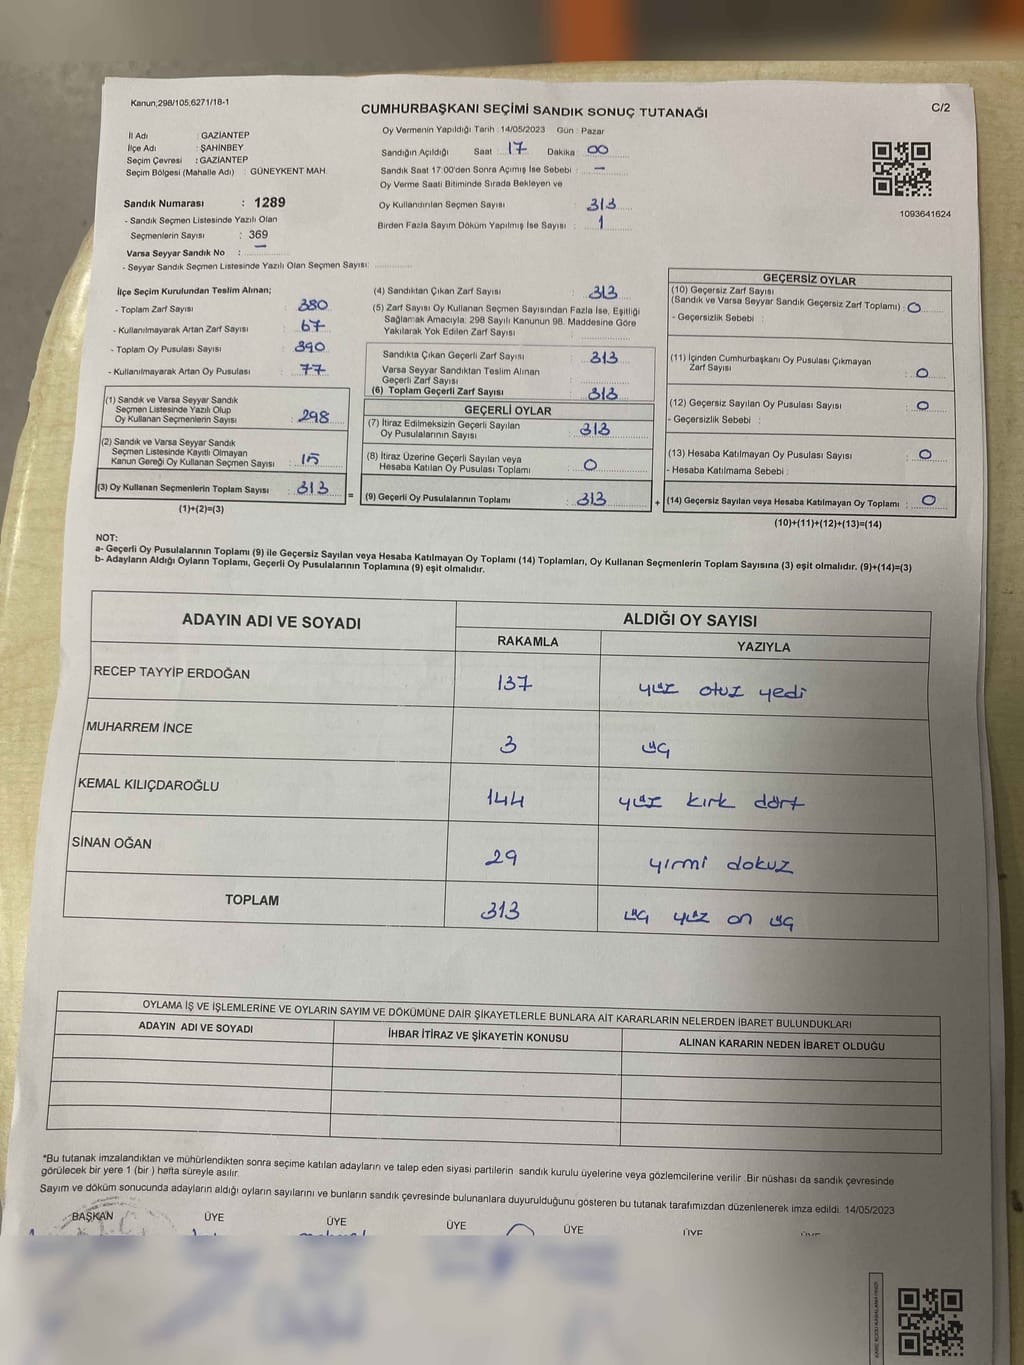 Kanun;298/105,6271/18-1
CUMHURBAŞKANI SEÇİMİ SANDIK SONUÇ TUTANAĞI
C/2
İl Adı : GAZİANTEP
İlçe Adı : ŞAHİNBEY
Seçim Çevresi : GAZİANTEP
Seçim Bölgesi (Mahalle Adı) : GÜNEYKENT MAH.
Sandık Numarası : 1289
- Sandık Seçmen Listesinde Yazılı Olan
Seçmenlerin Sayısı : 369
Varsa Seyyar Sandık No : —
- Seyyar Sandık Seçmen Listesinde Yazılı Olan Seçmen Sayısı:
Oy Vermenin Yapıldığı Tarih :14/05/2023 Gün : Pazar
Sandığın Açıldığı Saat : 17 Dakika : 00
Sandık Saat 17:00'den Sonra Açımış İse Sebebi : —
Oy Verme Saati Bitiminde Sırada Bekleyen ve
Oy Kullandırılan Seçmen Sayısı : 313
Birden Fazla Sayım Döküm Yapılmış İse Sayısı : 1
1093641624
İlçe Seçim Kurulundan Teslim Alınan;
- Toplam Zarf Sayısı : 380
- Kullanılmayarak Artan Zarf Sayısı : 67
- Toplam Oy Pusulası Sayısı : 390
- Kullanılmayarak Artan Oy Pusulası : 77
(1) Sandık ve Varsa Seyyar Sandık
Seçmen Listesinde Yazılı Olup
Oy Kullanan Seçmenlerin Sayısı : 298
(2) Sandık ve Varsa Seyyar Sandık
Seçmen Listesinde Kayıtlı Olmayan
Kanun Gereği Oy Kullanan Seçmen Sayısı : 15
(3) Oy Kullanan Seçmenlerin Toplam Sayısı : 313
(1)+(2)=(3)
=
(4) Sandıktan Çıkan Zarf Sayısı : 313
(5) Zarf Sayısı Oy Kullanan Seçmen Sayısından Fazla İse, Eşitliği
Sağlamak Amacıyla, 298 Sayılı Kanunun 98. Maddesine Göre
Yakılarak Yok Edilen Zarf Sayısı :
Sandıkta Çıkan Geçerli Zarf Sayısı : 313
Varsa Seyyar Sandıktan Teslim Alınan
Geçerli Zarf Sayısı :
(6) Toplam Geçerli Zarf Sayısı : 313
GEÇERLİ OYLAR
(7) İtiraz Edilmeksizin Geçerli Sayılan
Oy Pusulalarının Sayısı : 313
(8) İtiraz Üzerine Geçerli Sayılan veya
Hesaba Katılan Oy Pusulası Toplamı : 0
(9) Geçerli Oy Pusulalarının Toplamı : 313
+
GEÇERSİZ OYLAR
(10) Geçersiz Zarf Sayısı
(Sandık ve Varsa Seyyar Sandık Geçersiz Zarf Toplamı) : 0
- Geçersizlik Sebebi :
(11) İçinden Cumhurbaşkanı Oy Pusulası Çıkmayan
Zarf Sayısı : 0
(12) Geçersiz Sayılan Oy Pusulası Sayısı : 0
- Geçersizlik Sebebi :
(13) Hesaba Katılmayan Oy Pusulası Sayısı : 0
- Hesaba Katılmama Sebebi :
(14) Geçersiz Sayılan veya Hesaba Katılmayan Oy Toplamı : 0
(10)+(11)+(12)+(13)=(14)
NOT:
a- Geçerli Oy Pusulalarının Toplamı (9) ile Geçersiz Sayılan veya Hesaba Katılmayan Oy Toplamı (14) Toplamları, Oy Kullanan Seçmenlerin Toplam Sayısına (3) eşit olmalıdır. (9)+(14)=(3)
b- Adayların Aldığı Oyların Toplamı, Geçerli Oy Pusulalarının Toplamına (9) eşit olmalıdır.
ADAYIN ADI VE SOYADI
ALDIĞI OY SAYISI
RAKAMLA YAZIYLA
RECEP TAYYİP ERDOĞAN 137 yüz otuz yedi
MUHARREM İNCE 3 üç
KEMAL KILIÇDAROĞLU 144 yüz kırk dört
SİNAN OĞAN 29 yirmi dokuz
TOPLAM 313 üç yüz on üç
OYLAMA İŞ VE İŞLEMLERİNE VE OYLARIN SAYIM VE DÖKÜMÜNE DAİR ŞİKAYETLERLE BUNLARA AİT KARARLARIN NELERDEN İBARET BULUNDUKLARI
ADAYIN ADI VE SOYADI İHBAR İTİRAZ VE ŞİKAYETİN KONUSU ALINAN KARARIN NEDEN İBARET OLDUĞU
*Bu tutanak imzalandıktan ve mühürlendikten sonra seçime katılan adayların ve talep eden siyasi partilerin sandık kurulu üyelerine veya gözlemcilerine verilir .Bir nüshası da sandık çevresinde
görülecek bir yere 1 (bir ) hafta süreyle asılır.
Sayım ve döküm sonucunda adayların aldığı oyların sayılarını ve bunların sandık çevresinde bulunanlara duyurulduğunu gösteren bu tutanak tarafımızdan düzenlenerek imza edildi. 14/05/2023
BAŞKAN ÜYE ÜYE ÜYE ÜYE ÜYE